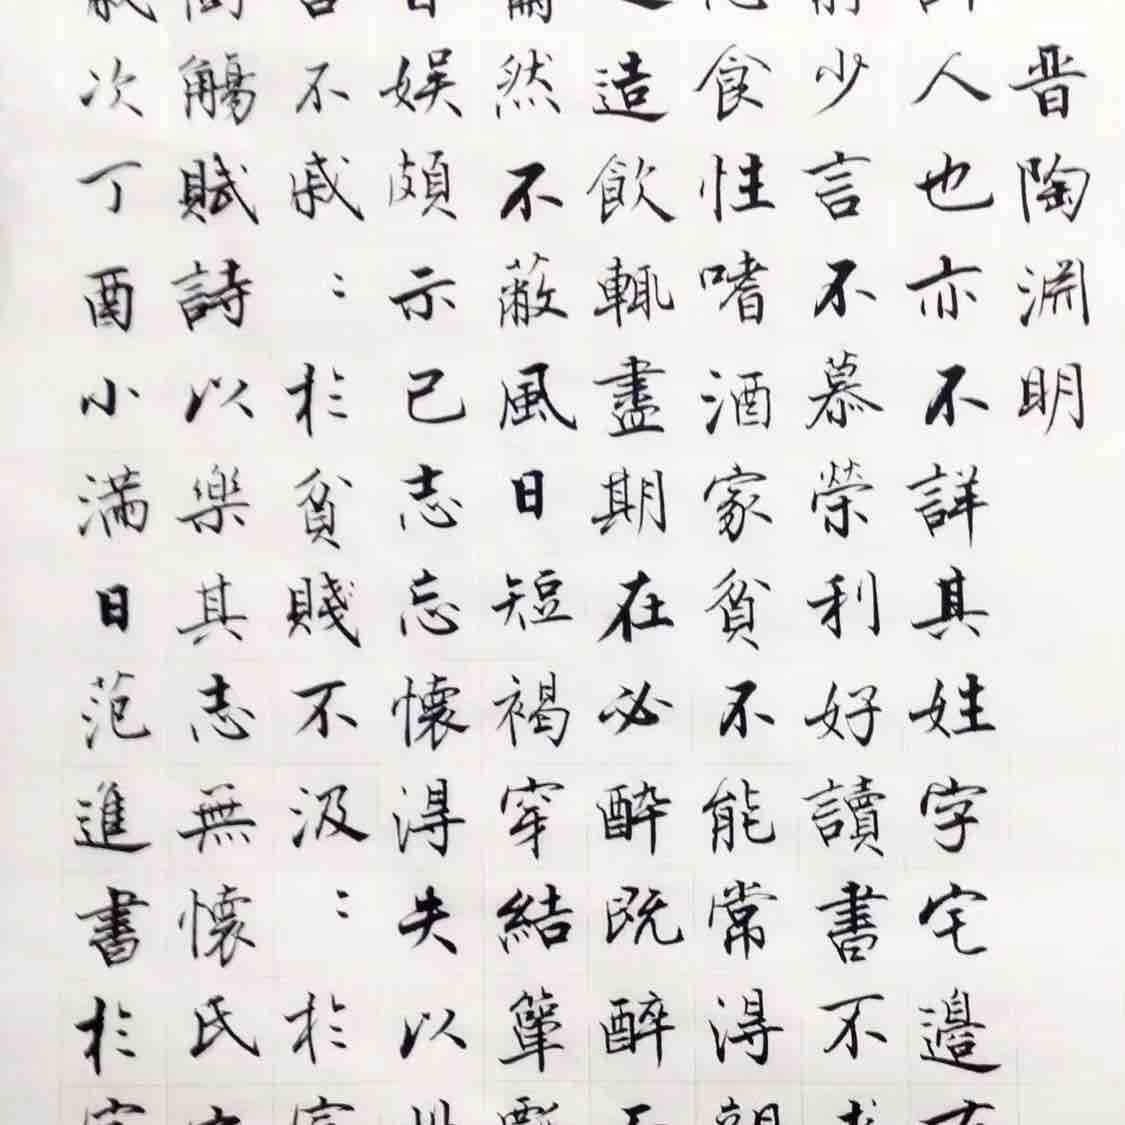 晋陶淵明
人也亦不詳其姓字宅邊
少言不慕榮利好讀書不
食性嗜酒家貧不能常得
造飲輒盡期在必醉既醉
然不蔽風日短褐穿結簞
娱頗示己志忘懷得失以
不戚：於貧賤不汲：於
觴賦詩以樂其志無懷氏
次丁酉小滿日范進書於